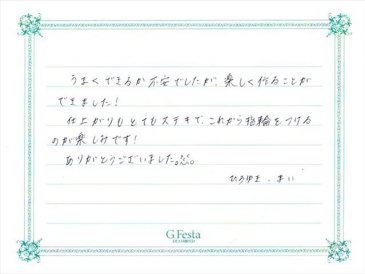 うまくできるか不安でしたが、楽しく作ることが
できました！
仕上がりもとてもステキで、これから指輪をつける
のが楽しみです！
ありがとうございました。
ひろゆき、まい
G.Festa